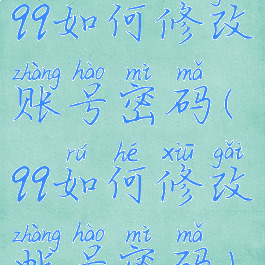 99如何修改
zhàng hào mì mǎ
账号密码(
rú hé xiū gǎi
99如何修改
zhàng hào mì mǎ
账号密码)